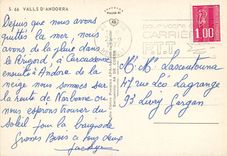 S. 66 VALLS D'ANDORRA
Depuis que nous avons
quitté la mer, nous
avons de la pluie dans
le Périgord, à Carcassonne
ensuite à Andorre de la
neige nous sommes sur
la route de Narbonne ou
nous espérons trouver du
soleil pour la baignade
Grosses Bises à tous deux
Jackye
CARRIÈRE
P.T.T.
1.00
Mr Me Lascoutouna
47 rue Léo Lagrange
93 Livry Gargan